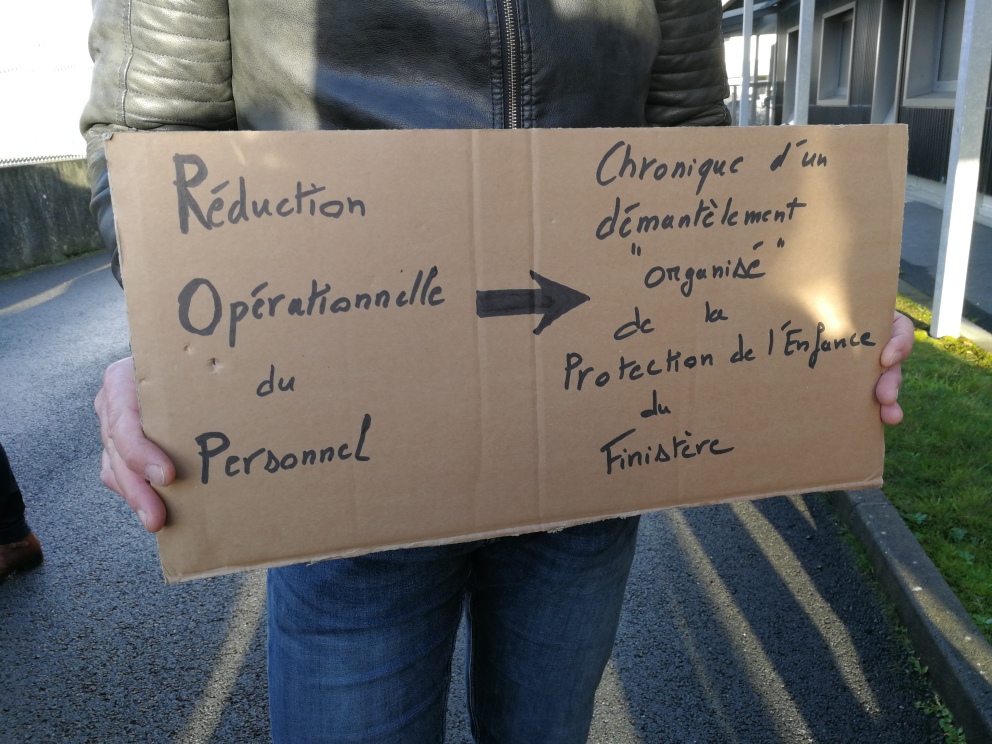 Réduction
Opérationnelle
du
Personnel
Chronique d'un
démantèlement
"organisé"
de la
Protection de l'Enfance
du
Finistère